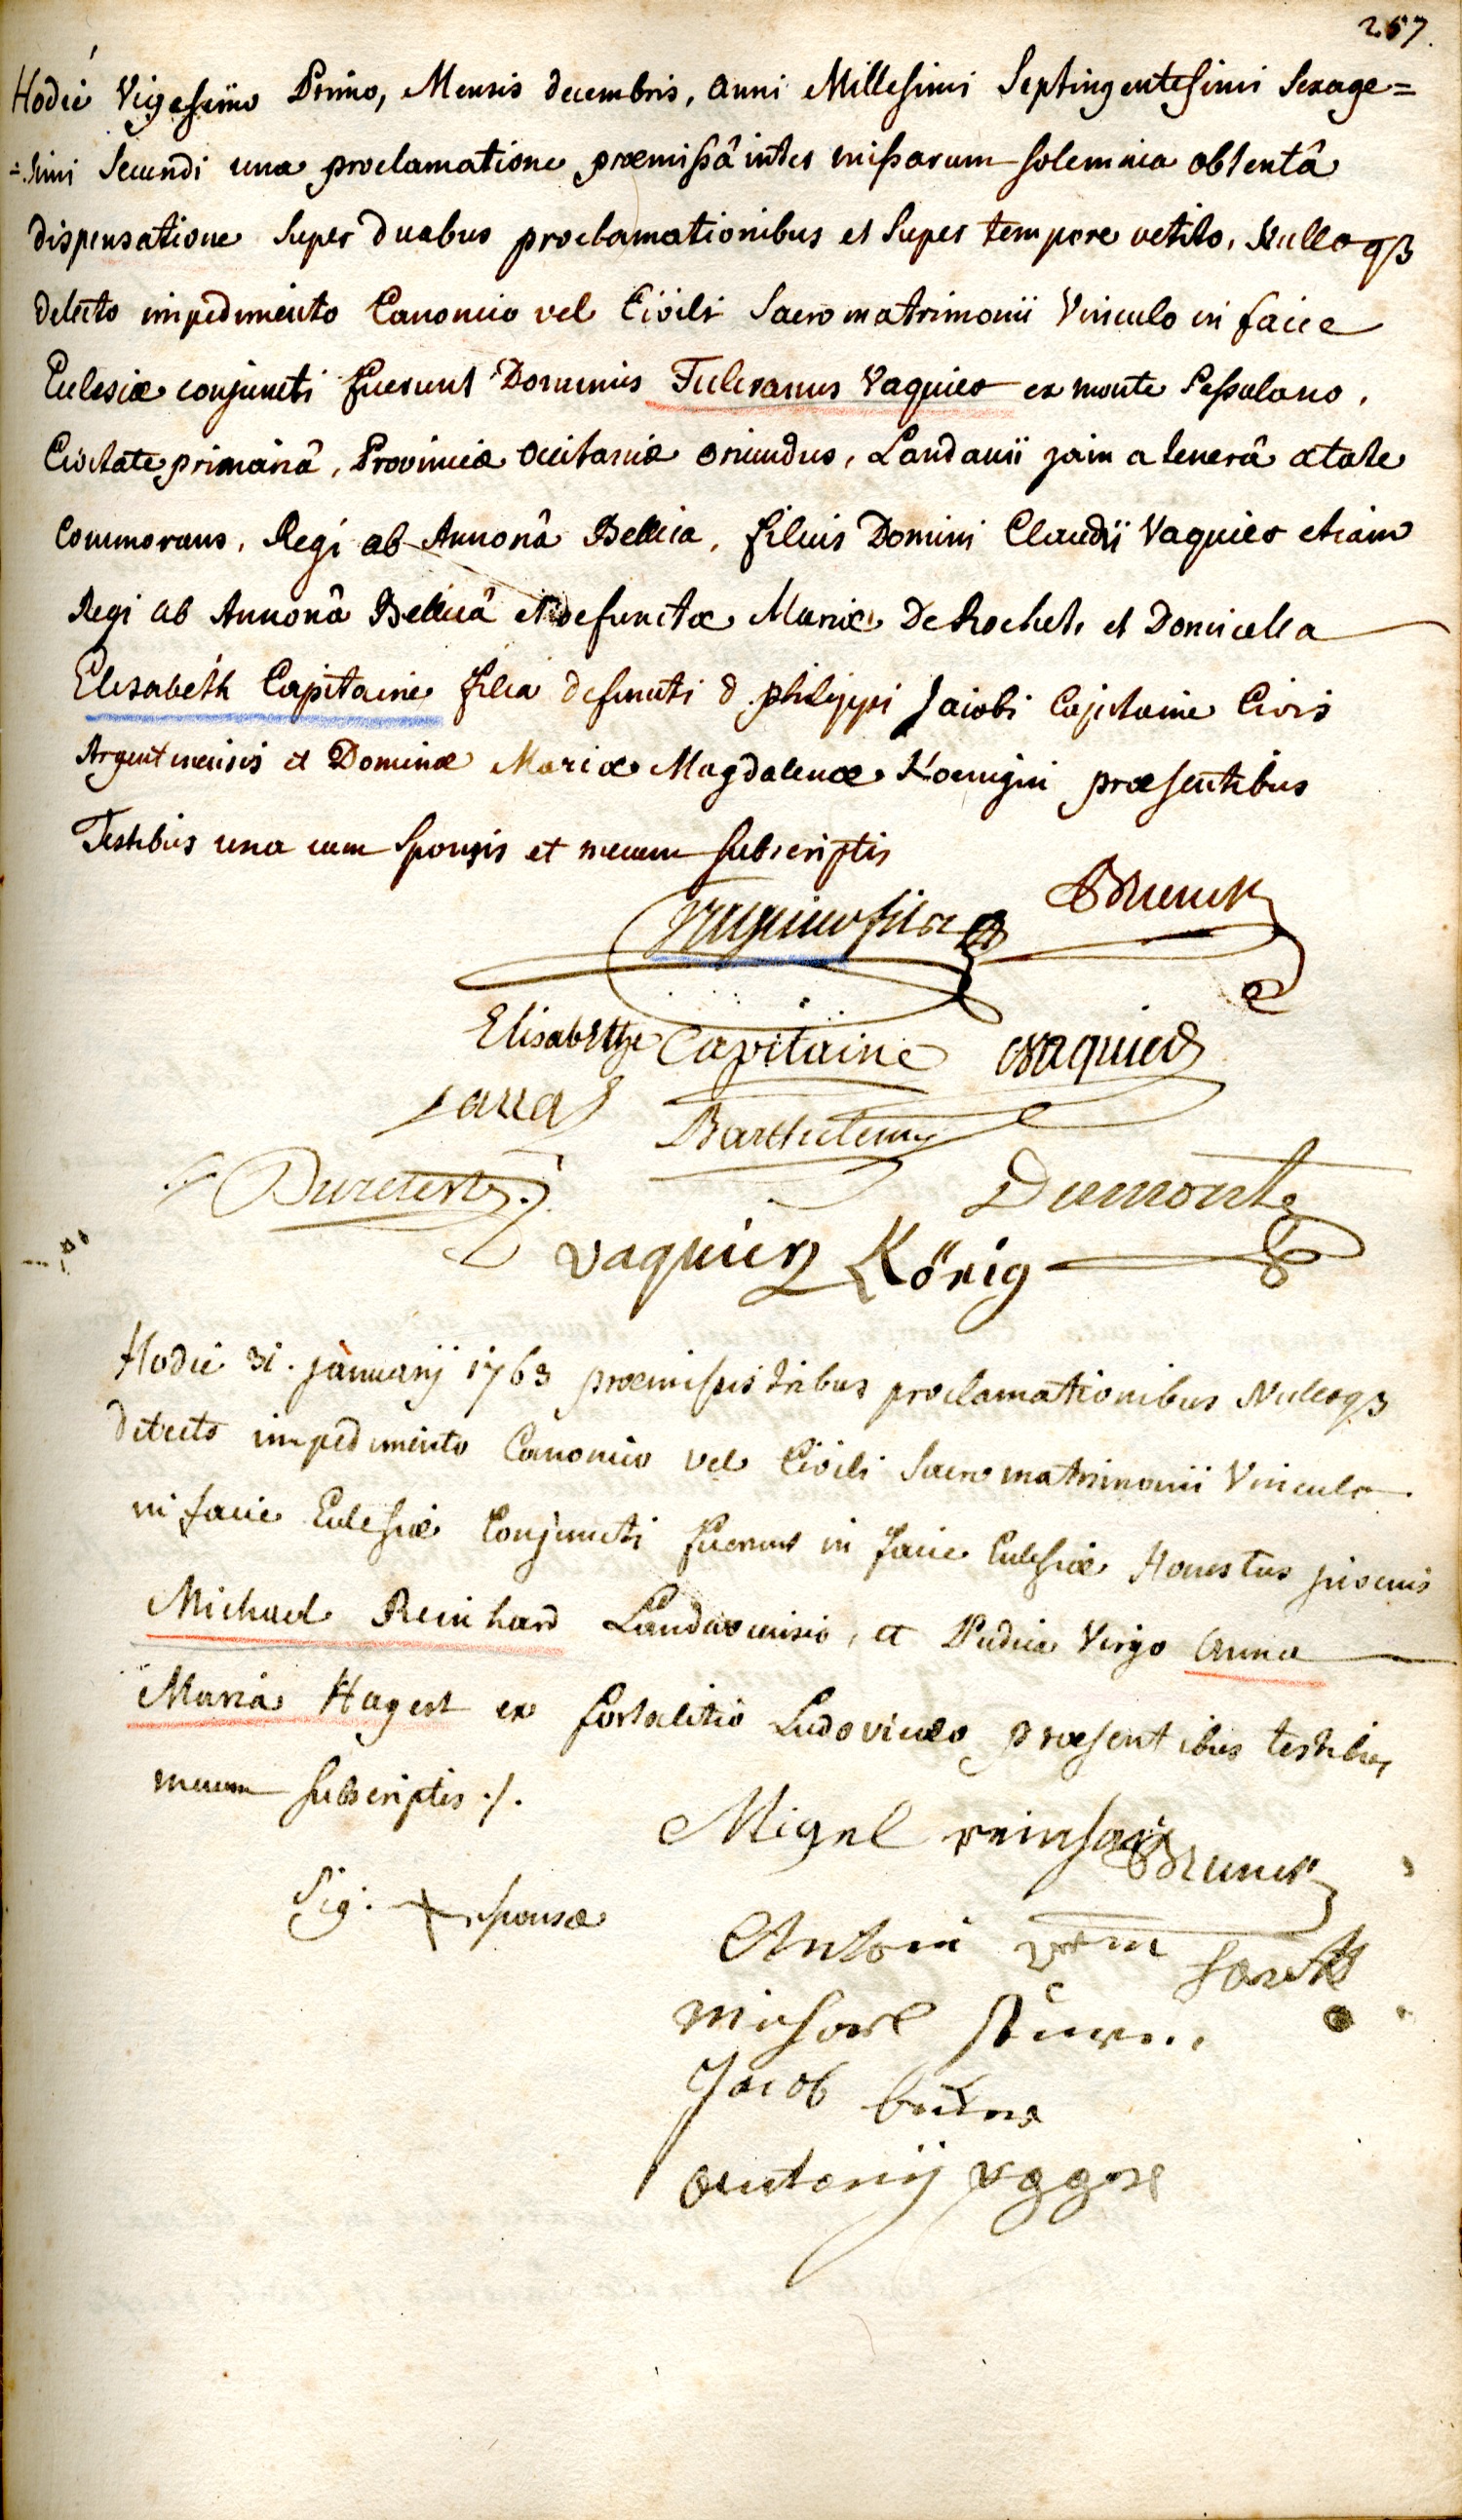 257.
Hodie Vigesimo Primo, Mensis decembris, anni Millesimi Septingentesimi Sexage=
=simi Secundi una proclamatione præmissâ inter missarum solemnia obtentâ
dispensatione super duabus proclamationibus et super tempore vetito, Nulloqȝ
detecto impedimento Canonico vel Civili Sacro matrimonii Vinculo in facie
Eclesiæ conjuncti fuerunt Dominus Fulcranus Vaquier ex monte Pessulano,
Civitate primariâ, Provinciæ occitaniæ oriundus, Landavii jam a tenerâ ætate
Commorans, Regi ab Annonâ Bellica, filius Domini Claudii Vaquier etiam
Regi ab Annonâ Bellicâ et defunctæ Mariæ De Rochet, et Domicella
Elisabeth Capitaine filia defuncti d. philippi Jacobi Capitaine Civis
Argentinensis et Dominæ Mariæ Magdalenæ Koenigin præsentibus
Testibus una cum Sponsis et mecum subscriptis
Vaquier fils Brunck
Elisabethe Capitaine Vaquier
Barthelemy
Dumont
vaquier König
Hodie 31. januarij 1763 præmissis tribus proclamationibus Nulloqȝ
detecto impedimento Canonico vel Civili Sacro matrimonii Vinculo
in facie Eclesiæ Conjuncti fuerunt in facie Eclesiæ Honestus juvenis
Michael Reinhard Landavensis, et Pudica Virgo Anna
Maria Hagert ex fortalitio Ludovico, præsentibus testibus
mecum subscriptis ./.
Migel reinhart
Brunck
Sig. + sponsæ
Antoni
Michael
Jacob